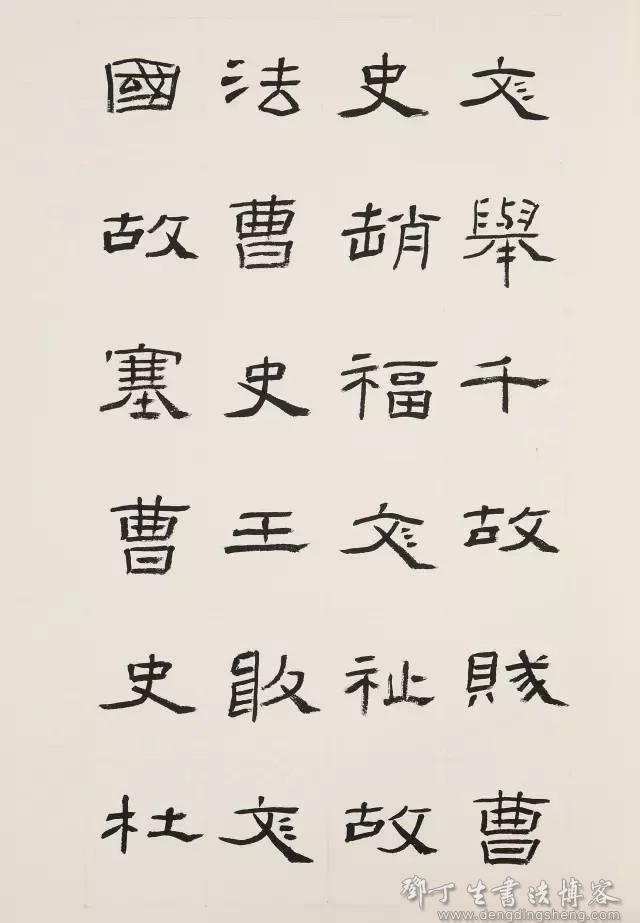 彣舉千故賊曹
史趙福彣祉故
法曹史王敢彣
國故塞曹史杜
鄧丁生書法博客
www.dengdingsheng.com